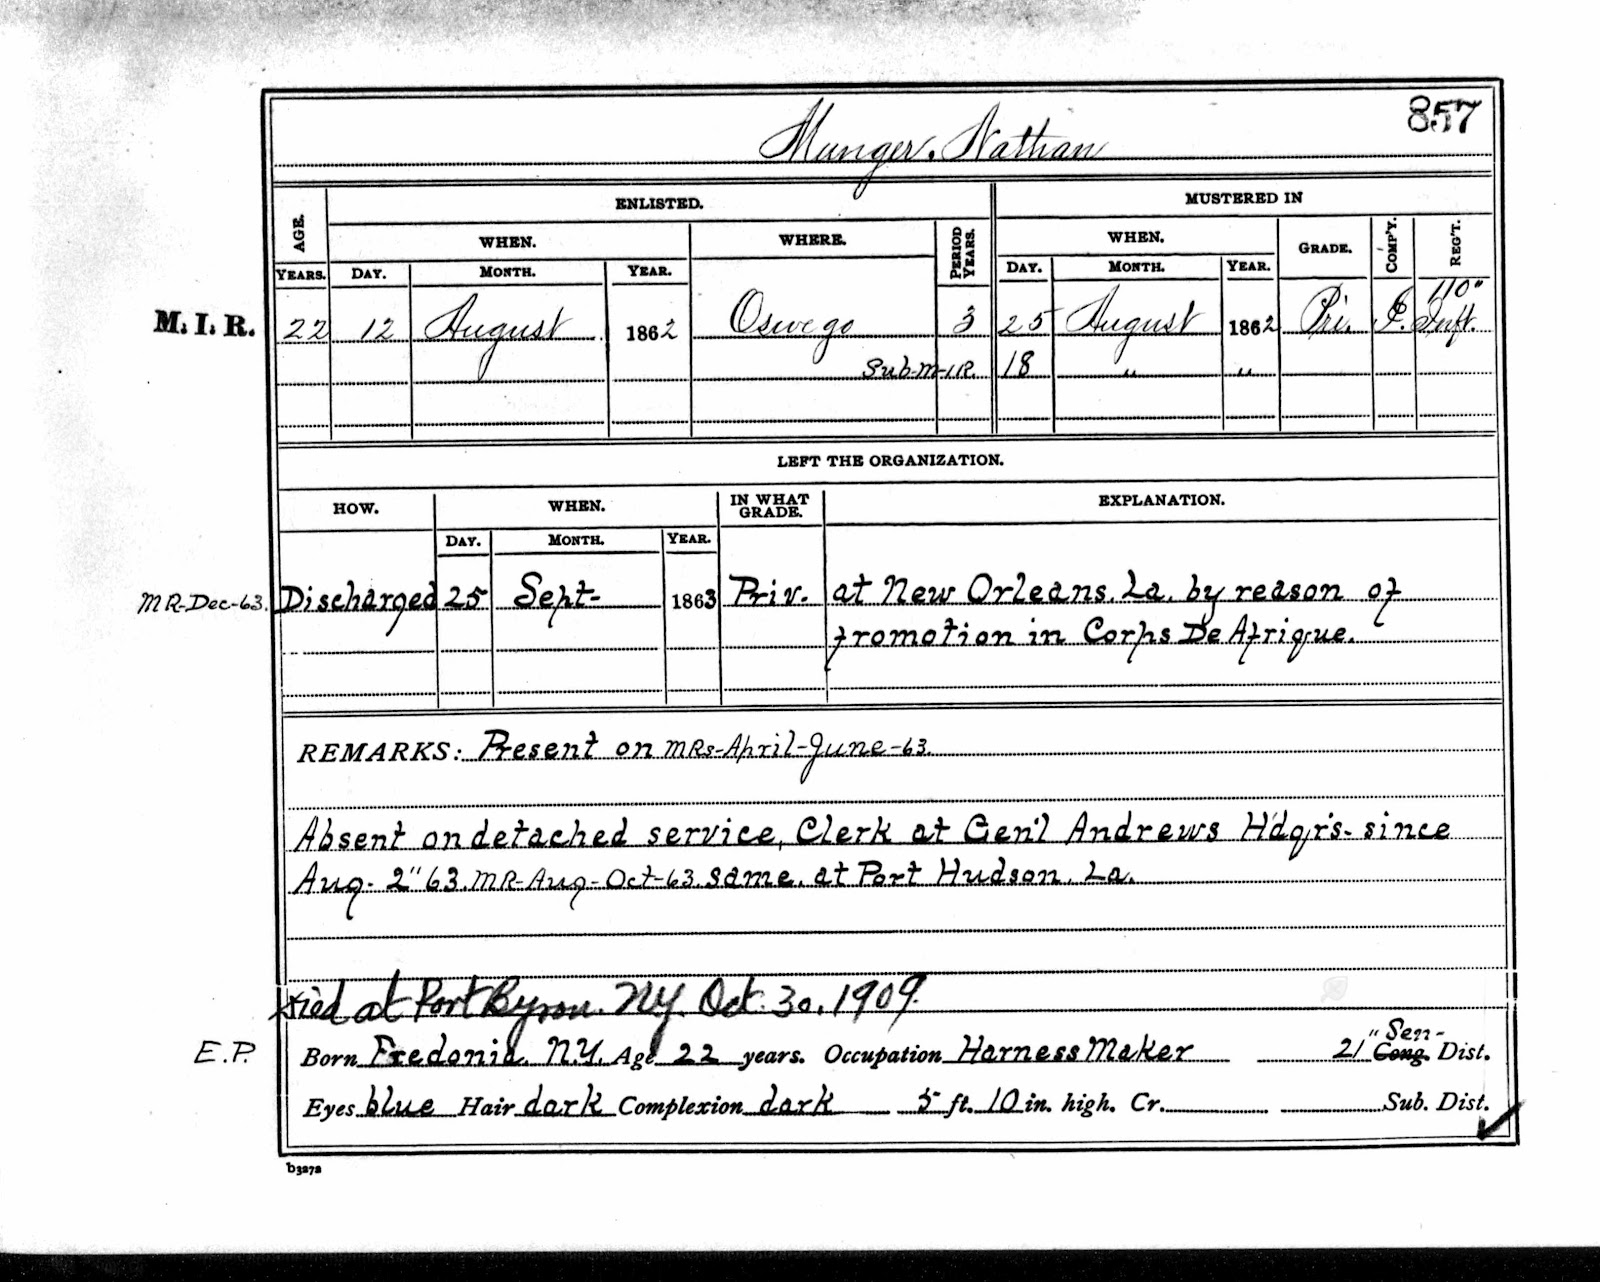 857
Munger, Nathan
ENLISTED. MUSTERED IN
AGE. WHEN. WHERE. PERIOD YEARS. WHEN. GRADE. COMP'Y. REG'T.
YEARS. DAY. MONTH. YEAR. DAY. MONTH. YEAR.
110"
M. I. R. 22 12 August 1862 Oswego 3 25 August 1862 Pri. Inft.
Sub-M-I.R. 18 " "
LEFT THE ORGANIZATION.
HOW. WHEN. IN WHAT GRADE. EXPLANATION.
DAY. MONTH. YEAR.
MR-Dec-63. Discharged 25 Sept- 1863 Priv. at New Orleans, La. by reason of
promotion in Corps De Afrique.
REMARKS: Present on MRs-April-June-63.
Absent on detached service, Clerk at Gen'l Andrews H'dqr's- since
Aug- 2" 63. MR-Aug-Oct-63. same, at Port Hudson, La.
died at Port Byron. NY. Oct. 30, 1909.
E.P. Born Fredonia, N.Y. Age 22 years. Occupation Harness Maker 21" Sen- Cong. Dist.
Eyes blue Hair dark Complexion dark 5 ft. 10 in. high. Cr. Sub. Dist.
b3272